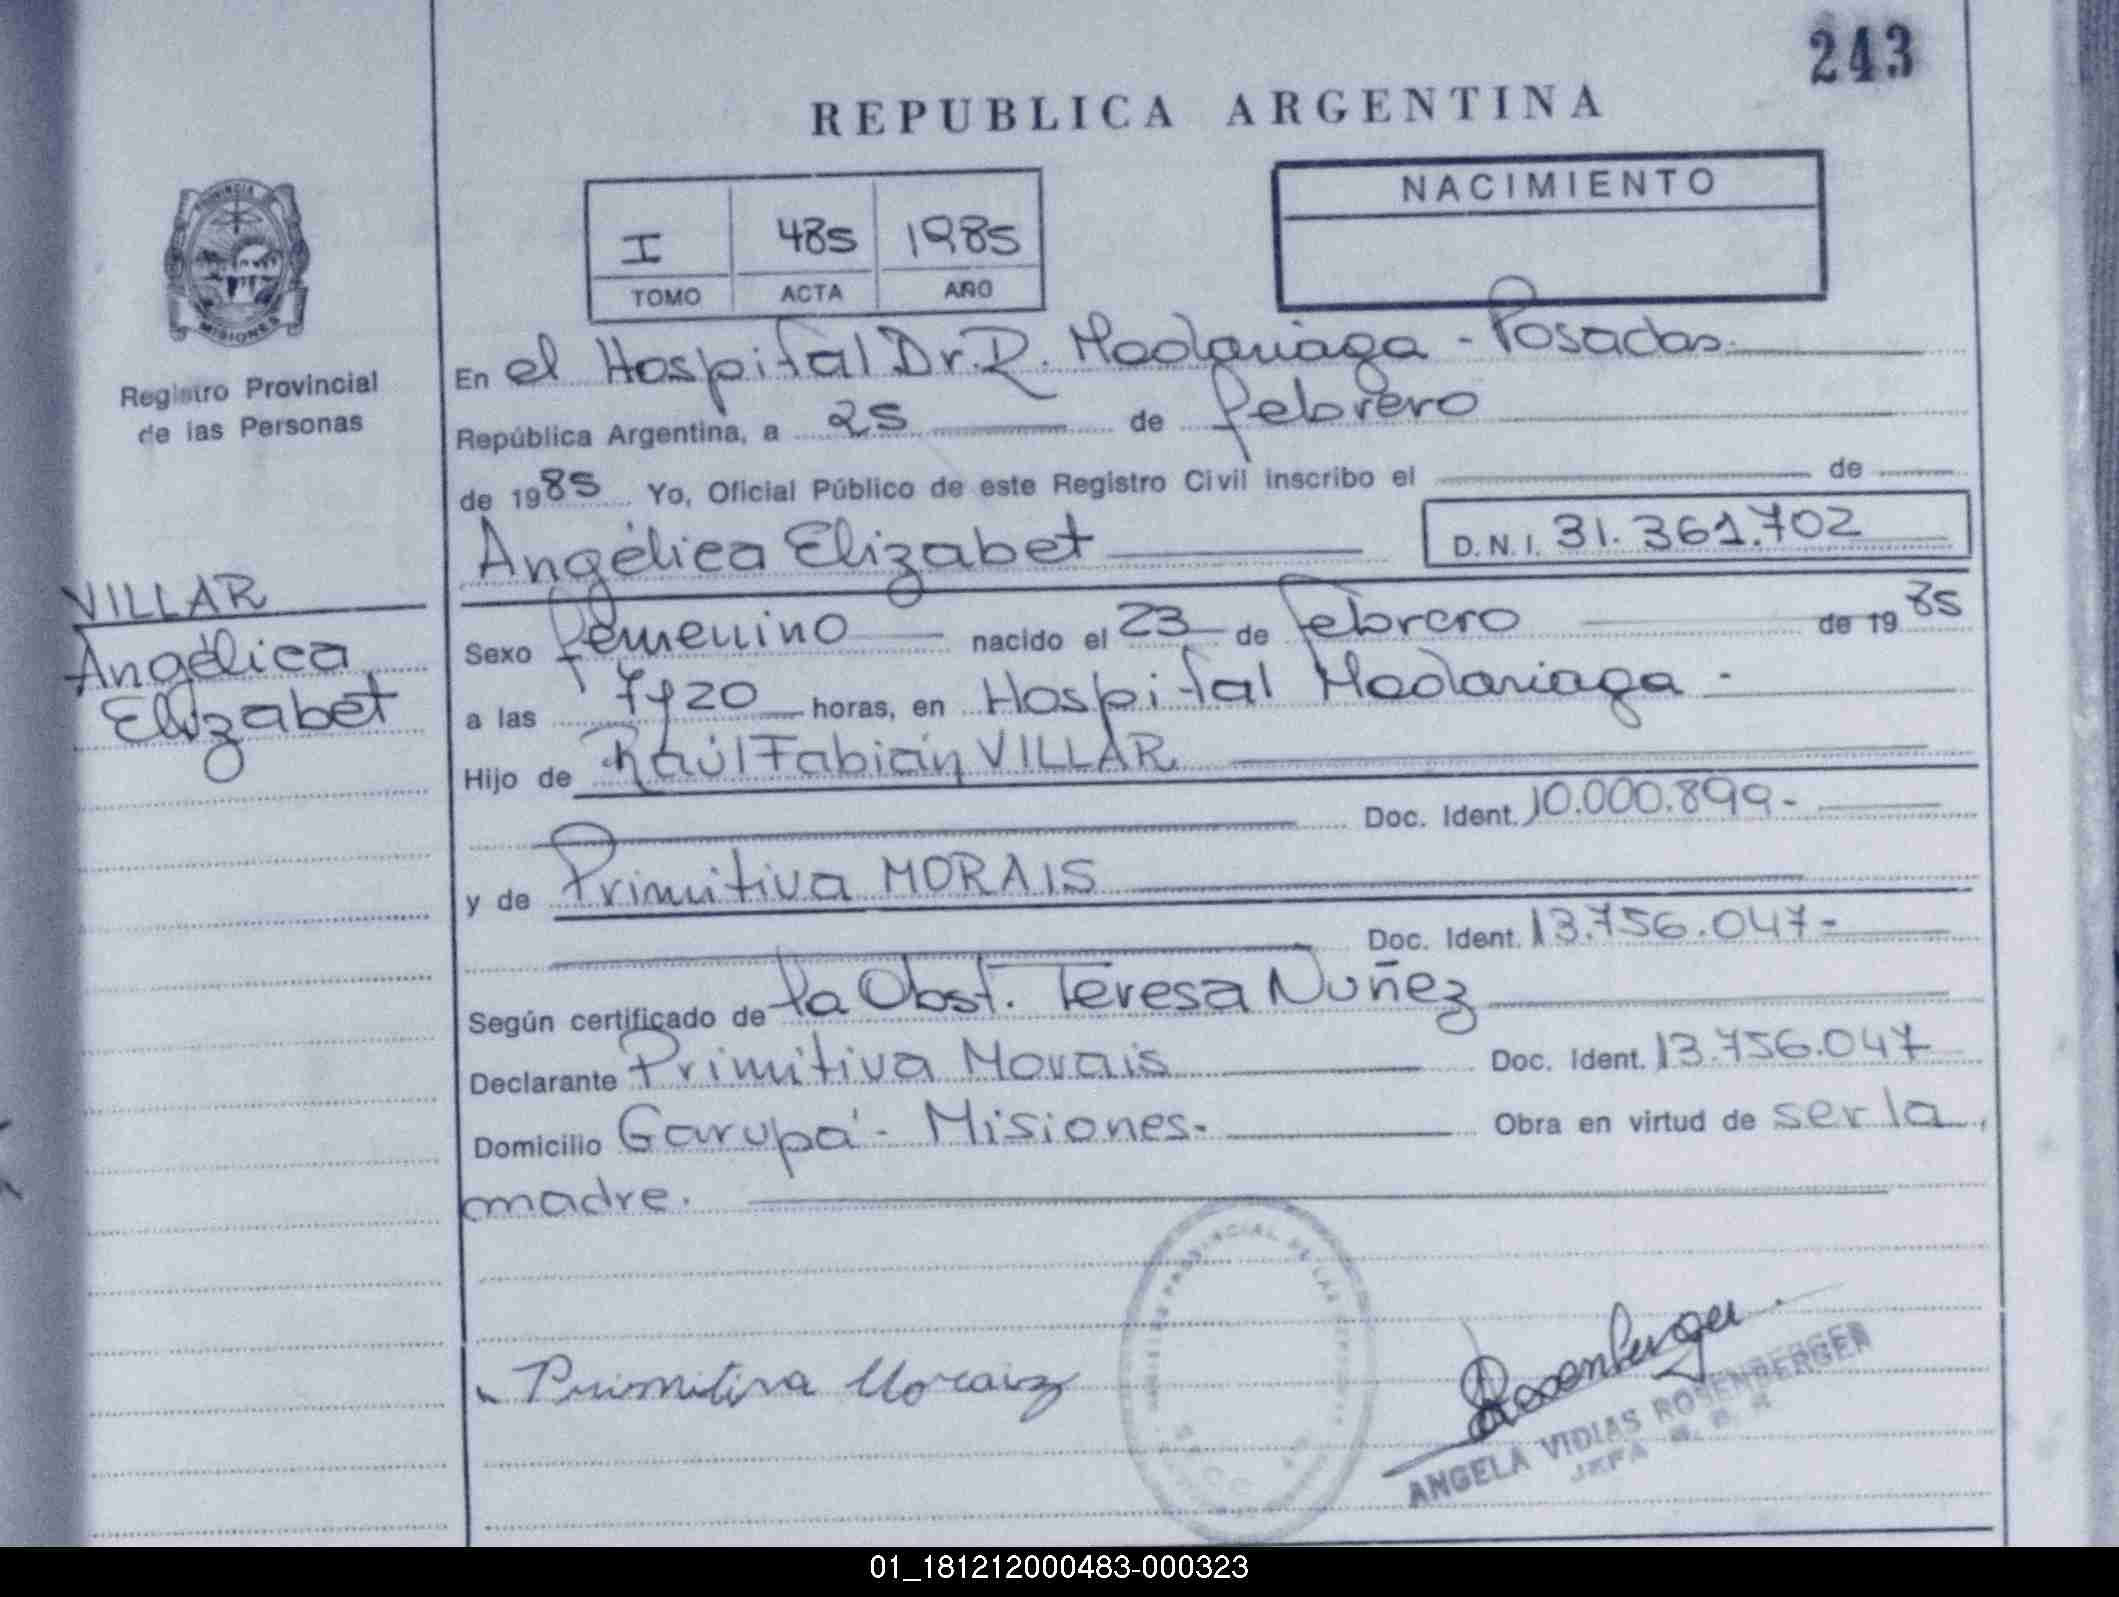 243
REPUBLICA ARGENTINA
PROVINCIA
MISIONES
Registro Provincial
de las Personas
I 485 1985
TOMO ACTA AÑO
NACIMIENTO
En el Hospital Dr. R. Madariaga - Posadas.
República Argentina, a 25 de febrero
de 1985 Yo, Oficial Público de este Registro Civil inscribo el de
Angélica Elizabet D.N.I. 31.361.702
VILLAR
Angélica
Elizabet
Sexo femenino nacido el 23 de febrero de 1985
a las 7y20 horas, en Hospital Madariaga -
Hijo de Raúl Fabián VILLAR
Doc. Ident. 10.000.899-
y de Primitiva MORAIS
Doc. Ident. 13.756.047-
Según certificado de la Obst. Teresa Nuñez
Declarante Primitiva Morais Doc. Ident. 13.756.047
Domicilio Garupá - Misiones- Obra en virtud de ser la
madre.
PROVINCIAL DE LAS
Primitiva Moraiz
Rosenberger
ANGELA VIDIAS ROSENBERGER
JEFA
01_181212000483-000323